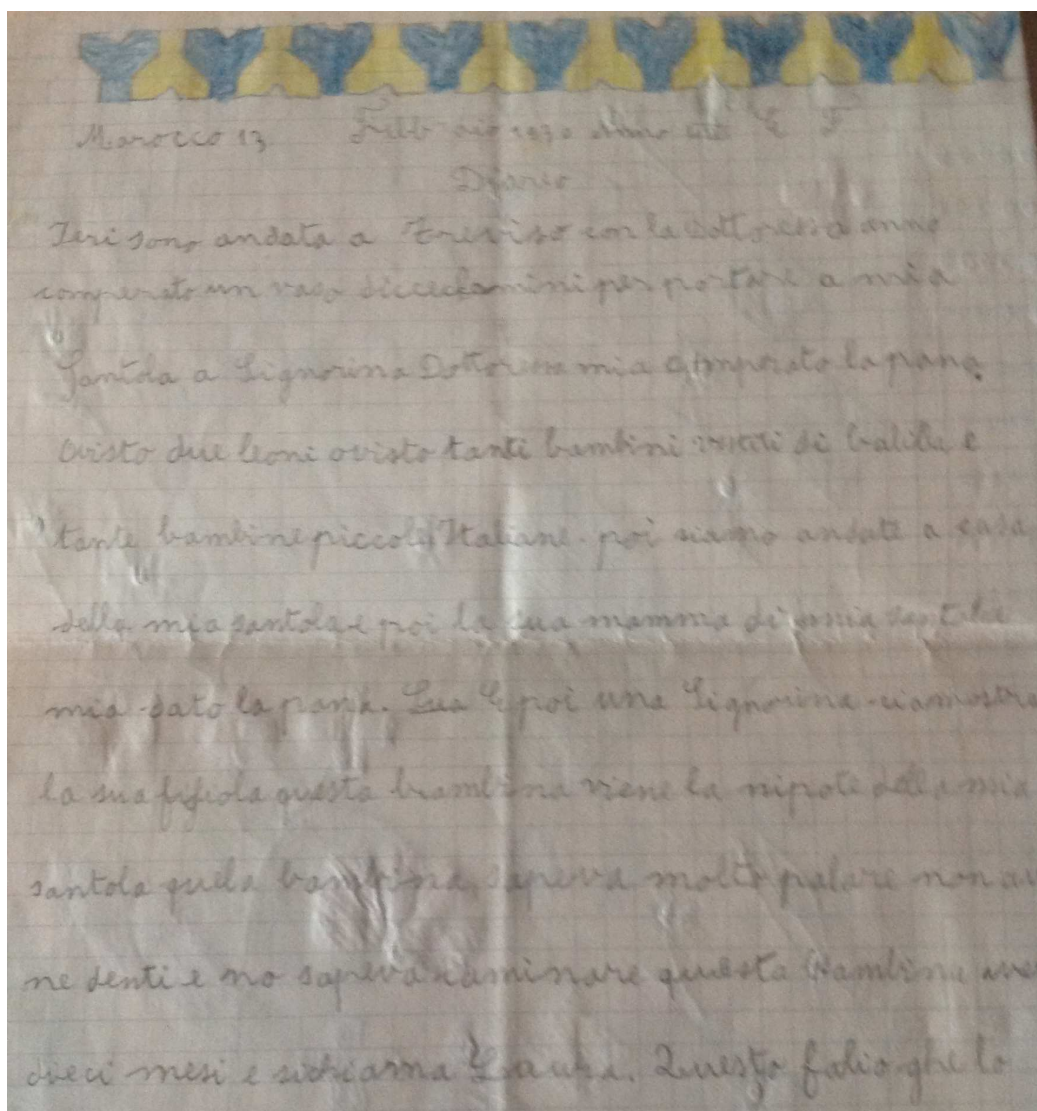 Marocco 13 Febbraio 1930 Anno E F
Diario
Ieri sono andata a Treviso con la Dottoressa anno
comperato un vaso di per portare a mia
Santola a Signorina Dottoressa mia comperato la pana.
ovisto due leoni ovisto tanti bambini vestiti di balilla e
tante bambine piccole Italiane. poi siamo andate a casa
della mia santola e poi la sua mamma di mia santola
mia dato la pana. E poi una Signorina
la sua questa bambina viene la nipote della mia
santola quela bambina sapeva molto palare non
ne denti e no sapeva caminare questa bambina
dieci mesi e sichiama Questo folio ghe lo